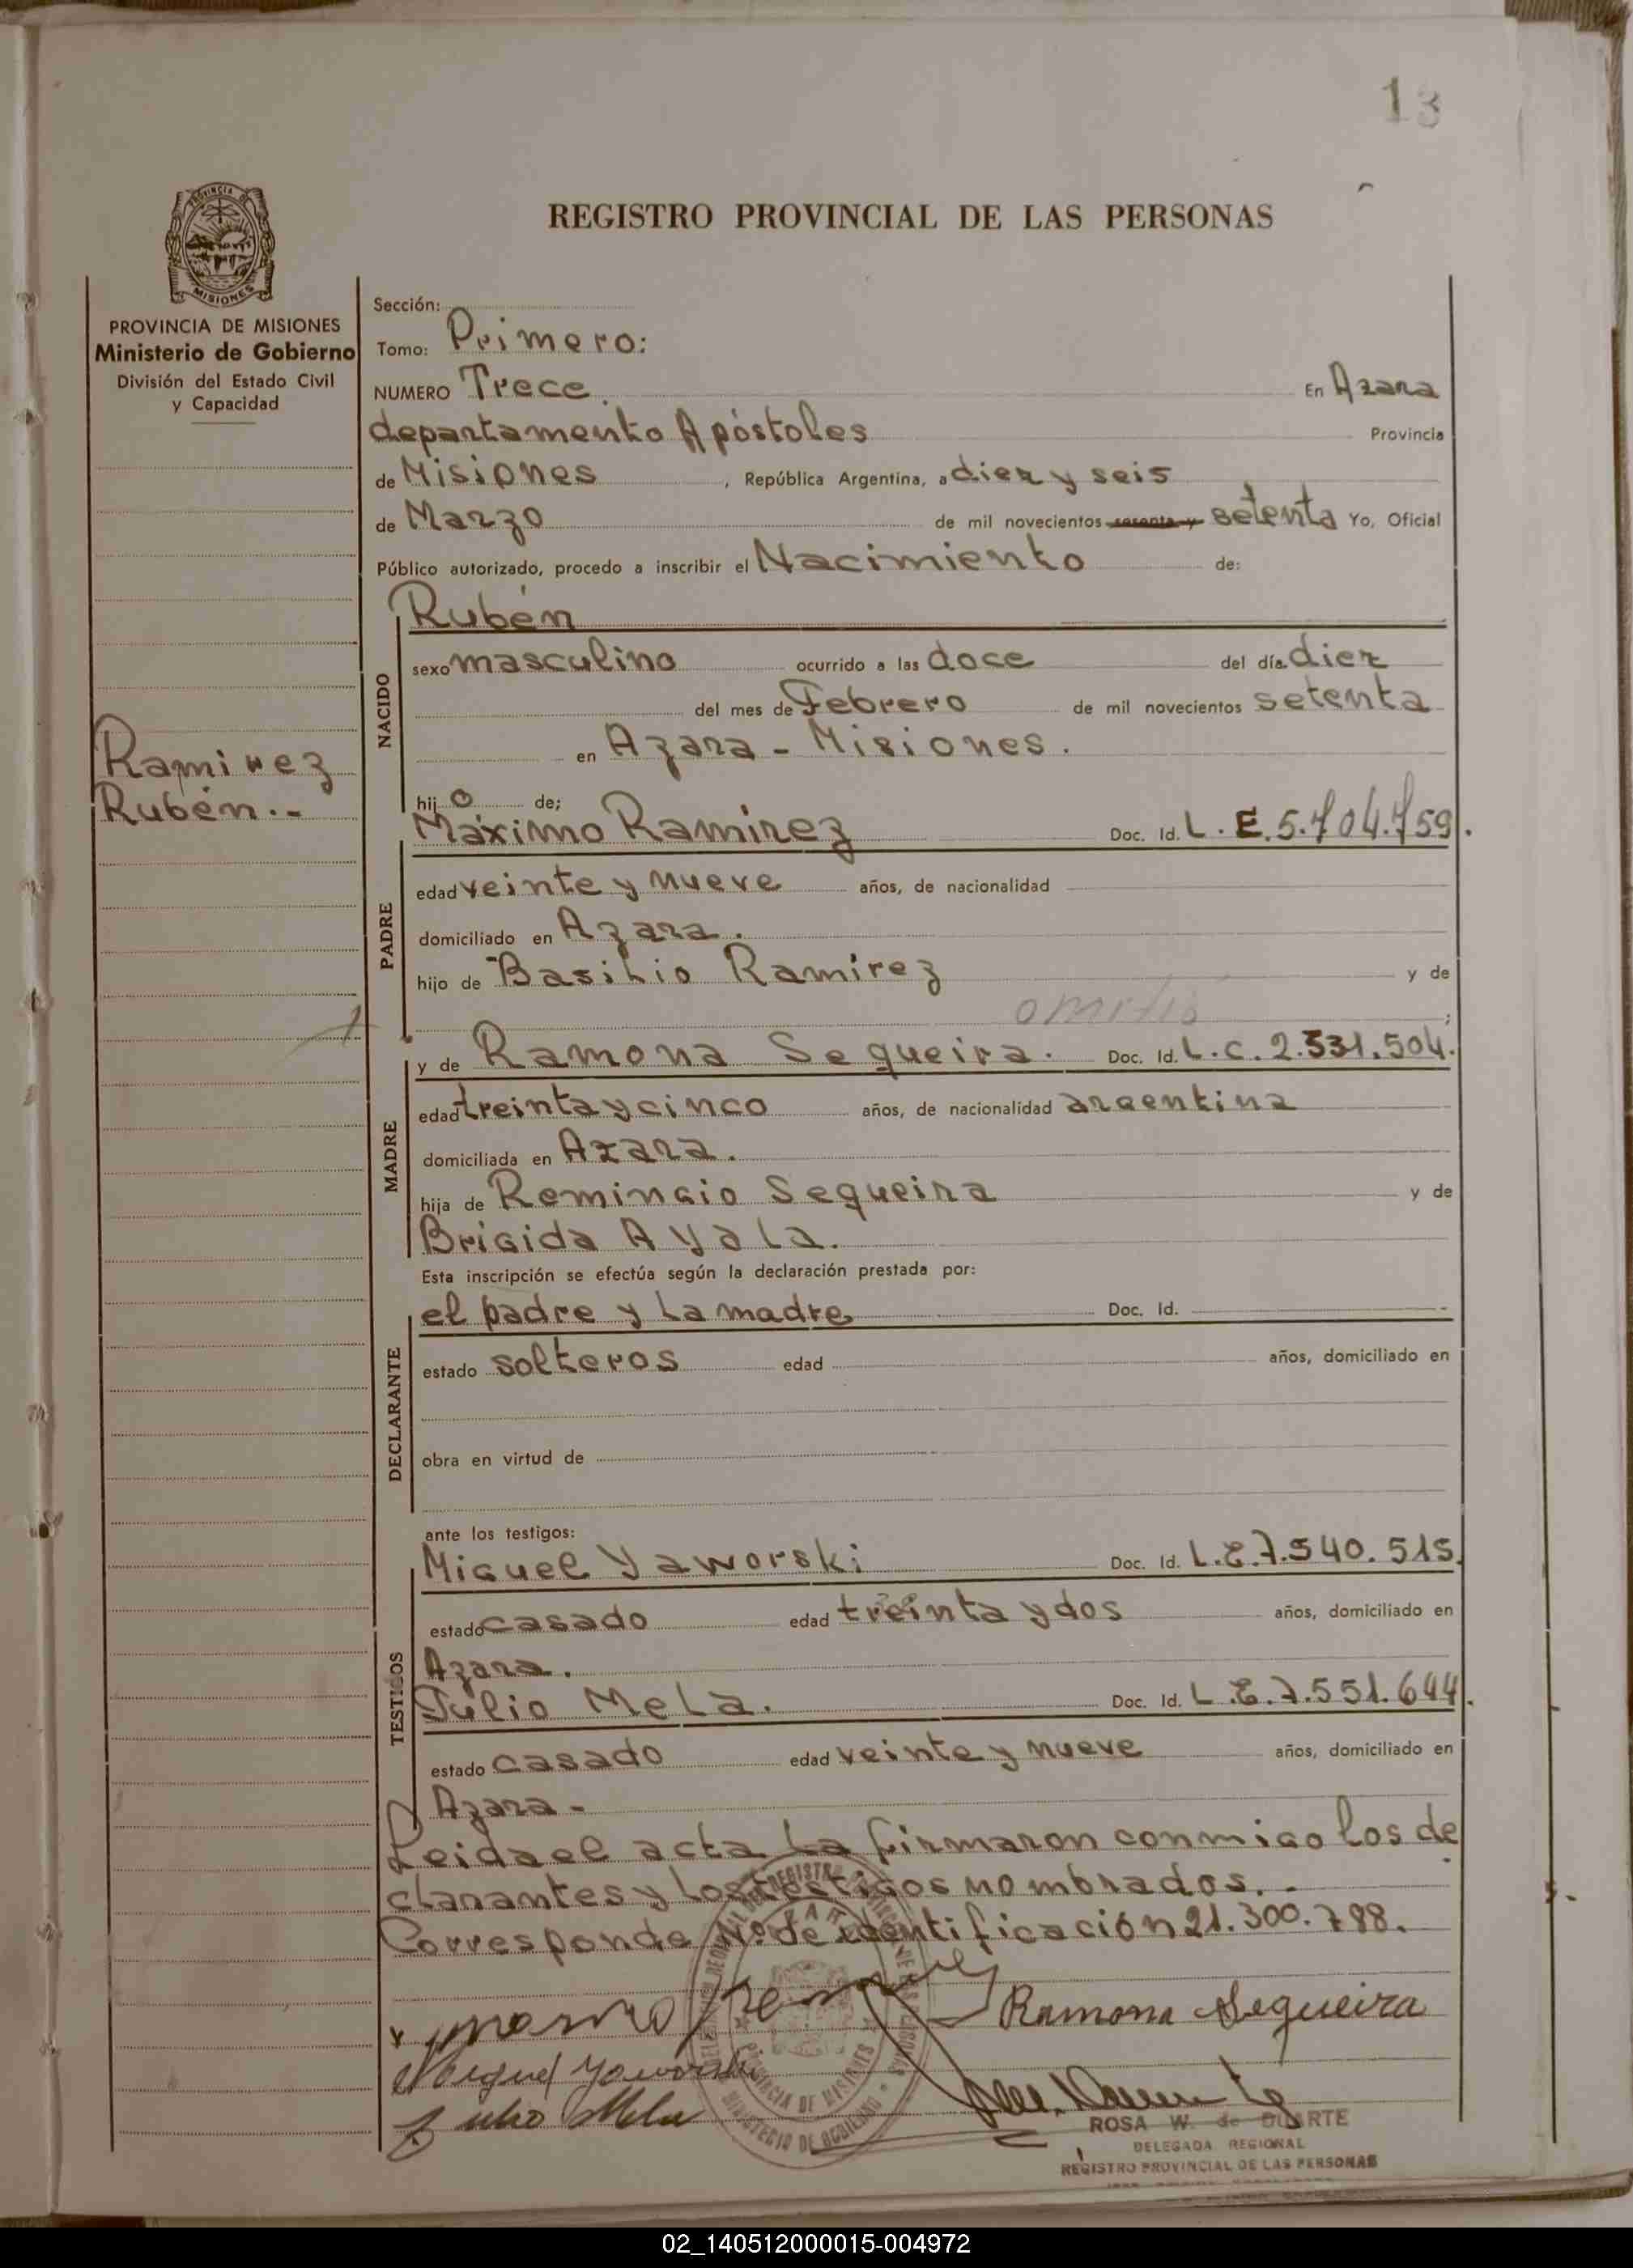 13
REGISTRO PROVINCIAL DE LAS PERSONAS
PROVINCIA DE
MISIONES
PROVINCIA DE MISIONES
Ministerio de Gobierno
División del Estado Civil
y Capacidad
Ramirez
Rubén.-
Sección:
Tomo: Primero:
NUMERO Trece. En Azara
departamento Apóstoles Provincia
de Misiones, República Argentina, a diez y seis
de Marzo de mil novecientos sesenta y setenta Yo, Oficial
Público autorizado, procedo a inscribir el Nacimiento de:
NACIDO
Rubén
sexo masculino ocurrido a las doce del día diez
del mes de Febrero de mil novecientos setenta
en Azara - Misiones.
hijo de;
PADRE
Máximo Ramírez Doc. Id. L.E. 5.704.759.
edad veinte y nueve años, de nacionalidad
domiciliado en Azara.
hijo de Basilio Ramírez y de
omitió ;
MADRE
y de Ramona Sequeira. Doc. Id. L.C. 2.331.504.
edad treinta y cinco años, de nacionalidad argentina
domiciliada en Azara.
hija de Remingio Sequeira y de
Brigida Ayala.
Esta inscripción se efectúa según la declaración prestada por:
DECLARANTE
el padre y la madre Doc. Id.
estado solteros edad años, domiciliado en
obra en virtud de
ante los testigos:
TESTIGOS
Miguel Yaworski Doc. Id. L.E. 7.540.515.
estado casado edad treinta y dos años, domiciliado en
Azara.
Julio Mela. Doc. Id. L.E. 7.551.644.
estado casado edad veinte y nueve años, domiciliado en
Azara-
Leida el acta la firmaron conmigo los de
clarantes y los testigos nombrados.-
Corresponde Nº de identificación 21.300.798.
Ramona Sequeira
Miguel Yaworski
Julio Mela
PROVINCIA DE MISIONES
MINISTERIO DE GOBIERNO
ROSA W. de DUARTE
DELEGADA REGIONAL
REGISTRO PROVINCIAL DE LAS PERSONAS
02_140512000015-004972